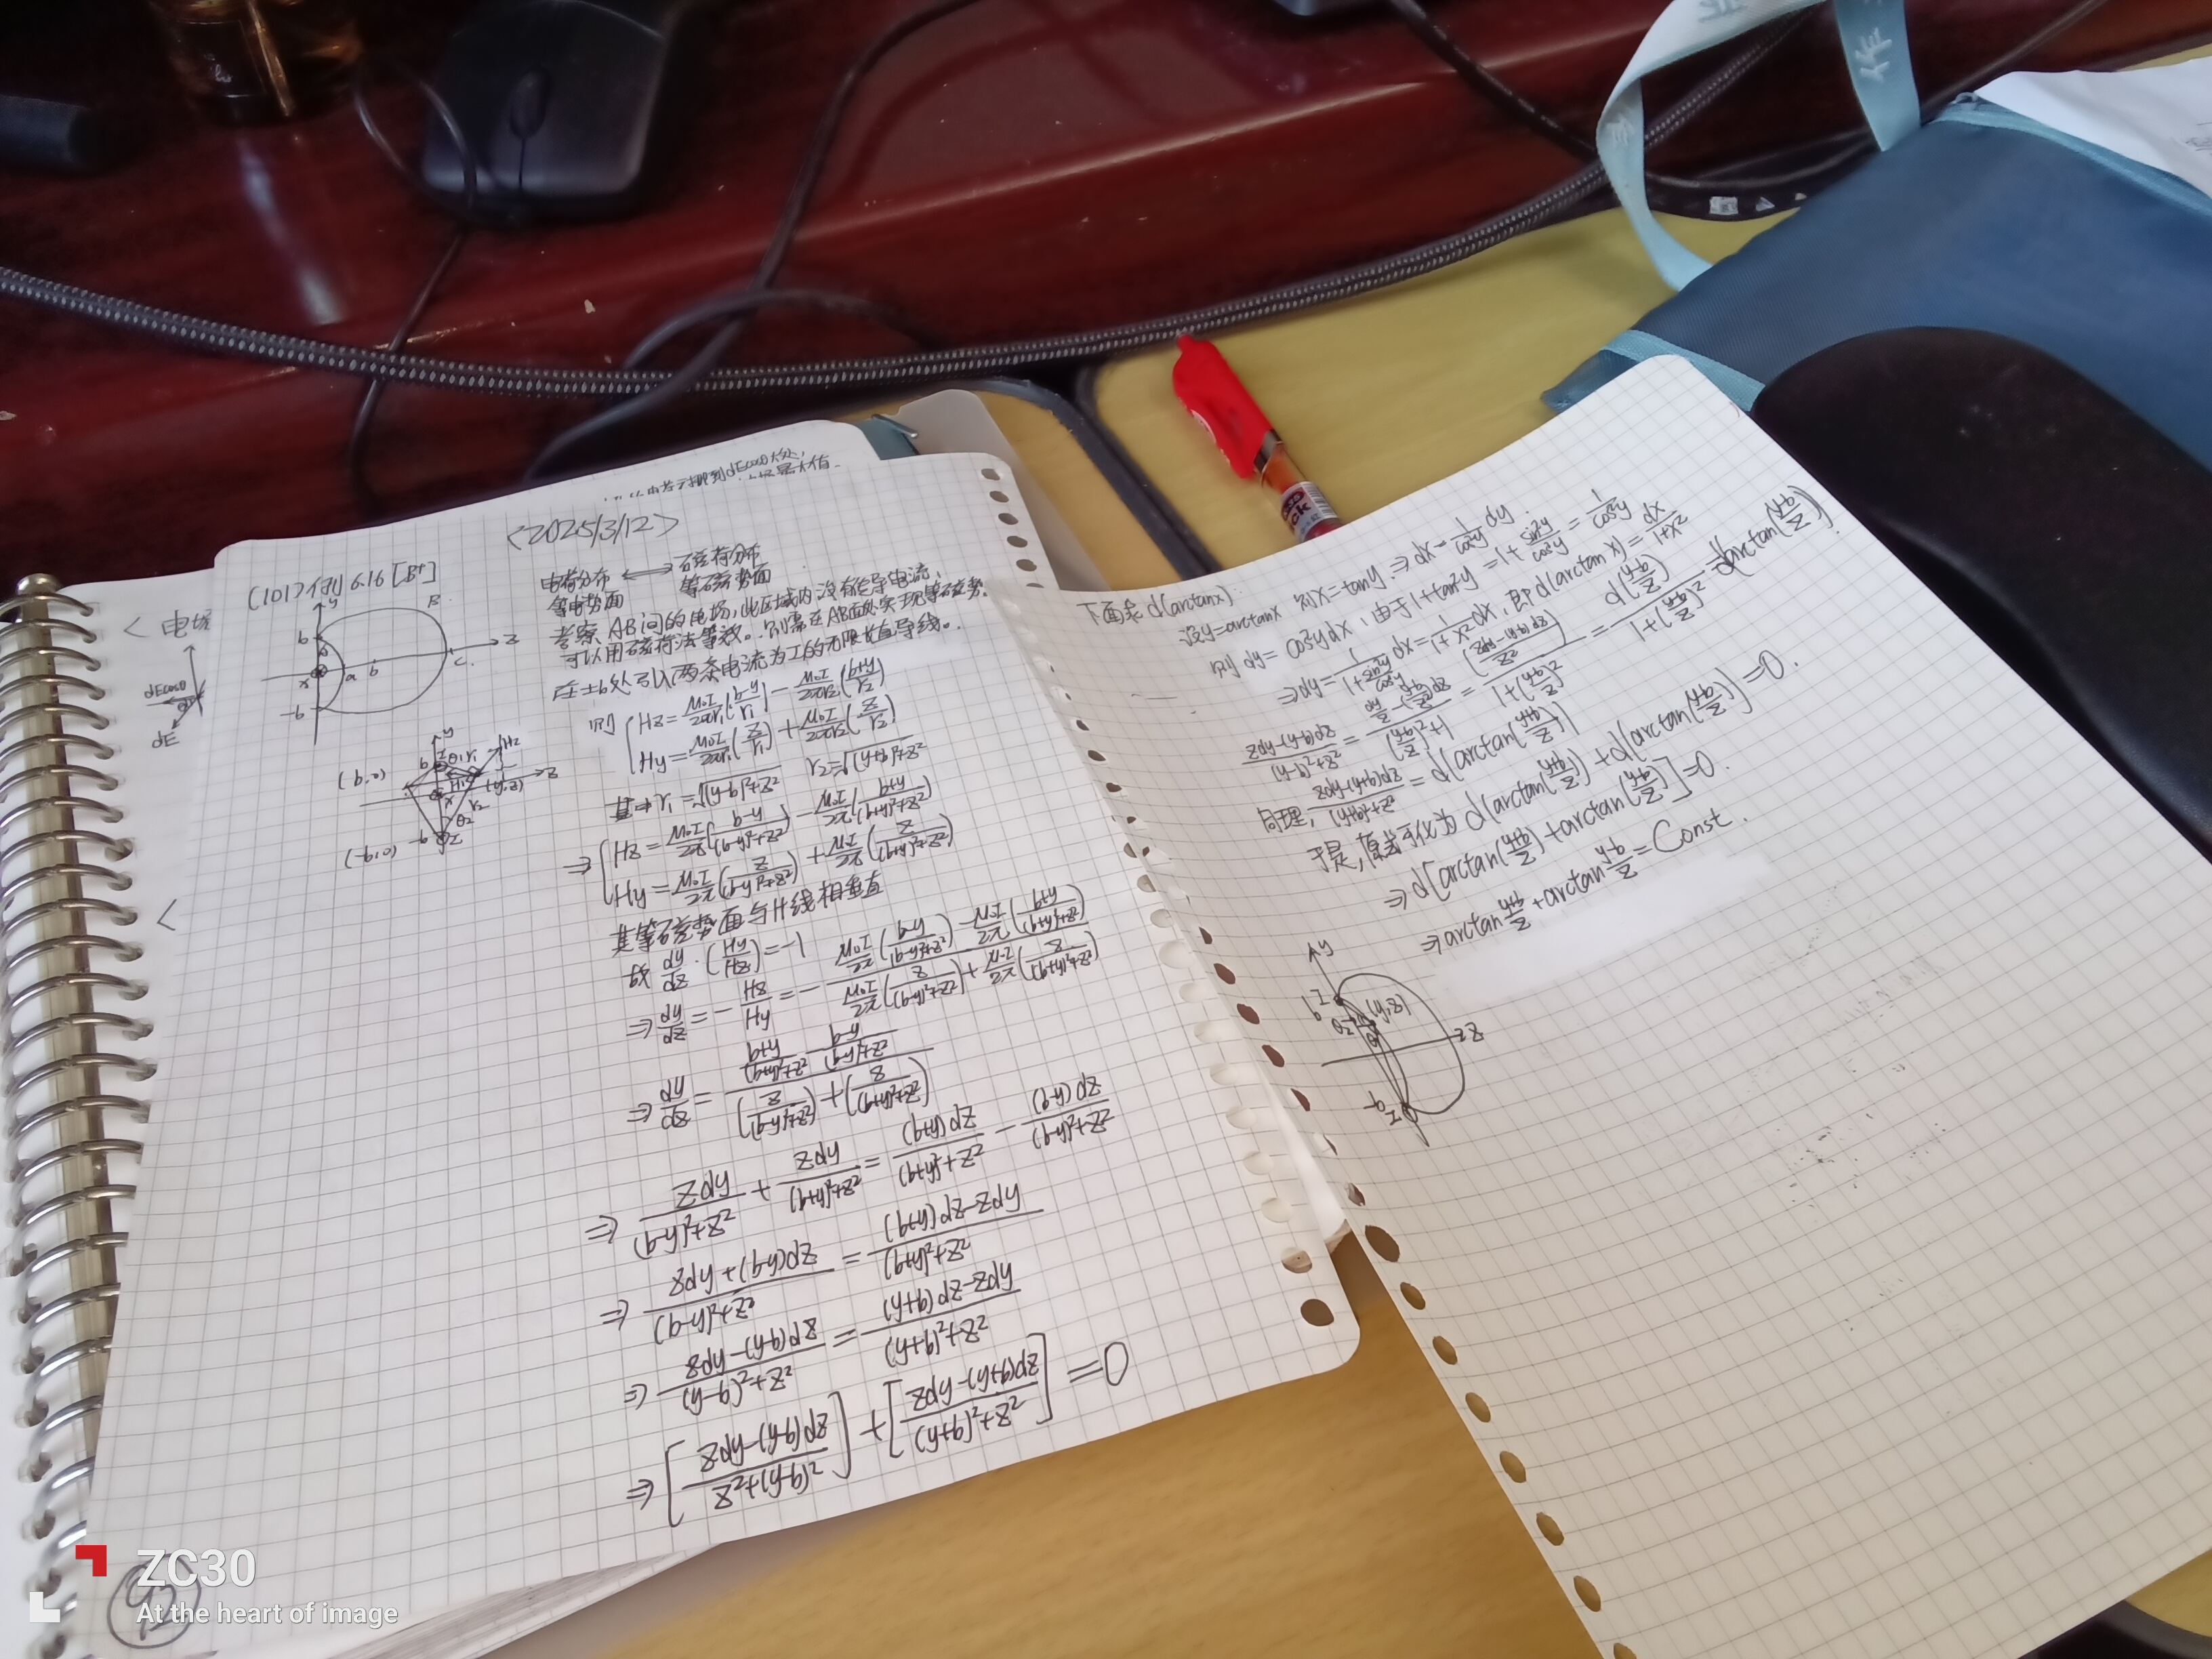 <2025/3/12>
(101)例6.16 [B+]
电荷分布 ⟷ 磁荷分布
等电势面 等磁势面
考察AB间的电场,此区域内没有传导电流,
可以用磁荷法等效。则需在AB面处实现等磁势。
在±b处引入两条电流为I的无限长直导线。
则 { Hz = μ₀I/2πr₁ ((b-y)/r₁) - μ₀I/2πr₂ ((b+y)/r₂)
Hy = μ₀I/2πr₁ (z/r₁) + μ₀I/2πr₂ (z/r₂)
其中 r₁ = √((y-b)²+z²) r₂ = √((y+b)²+z²)
⇒ { Hz = μ₀I/2π ((b-y)/((b-y)²+z²)) - μ₀I/2π ((b+y)/((b+y)²+z²))
Hy = μ₀I/2π (z/((b-y)²+z²)) + μ₀I/2π (z/((b+y)²+z²))
其等磁势面与H线相垂直
故 dy/dz · (Hy/Hz) = -1
⇒ dy/dz = - Hz/Hy = - [μ₀I/2π ((b-y)/((b-y)²+z²)) - μ₀I/2π ((b+y)/((b+y)²+z²))] / [μ₀I/2π (z/((b-y)²+z²)) + μ₀I/2π (z/((b+y)²+z²))]
⇒ dy/dz = [(b+y)/((b+y)²+z²) - (b-y)/((b-y)²+z²)] / [(z/((b-y)²+z²)) + (z/((b+y)²+z²))]
⇒ zdy/((b-y)²+z²) + zdy/((b+y)²+z²) = (b+y)dz/((b+y)²+z²) - (b-y)dz/((b-y)²+z²)
⇒ (zdy+(b-y)dz)/((b-y)²+z²) = ((b+y)dz-zdy)/((b+y)²+z²)
⇒ (zdy-(y-b)dz)/((y-b)²+z²) = ((y+b)dz-zdy)/((y+b)²+z²)
⇒ [(zdy-(y-b)dz)/(z²+(y-b)²)] + [(zdy-(y+b)dz)/((y+b)²+z²)] = 0
y
b
B
z
x
a
b
C
-b
(b,0)
(-b,0)
y
b
I
θ₁
r₁
H₂
H₁
(y,z)
z
x
r₂
θ₂
-b
I
<电场
dEcosθ
dE
<
92
下面求 d(arctanx):
设y=arctanx 则x=tany. ⇒ dx = 1/cos²y dy.
则 dy = cos²y dx, 由于 1+tan²y = 1 + sin²y/cos²y = 1/cos²y
⇒ dy = 1/(1+sin²y/cos²y) dx = 1/(1+x²) dx, 即 d(arctan x) = dx/(1+x²)
(zdy-(y-b)dz)/((y-b)²+z²) = (dy/z - ((y-b)/z²)dz)/(((y-b)/z)²+1) = ((zdy-(y-b)dz)/z²)/(1+((y-b)/z)²) = d((y-b)/z)/(1+((y-b)/z)²) = d(arctan((y-b)/z)).
同理, (zdy-(y+b)dz)/((y+b)²+z²) = d(arctan((y+b)/z))
于是, 原式可化为 d(arctan((y+b)/z)) + d(arctan((y-b)/z)) = 0.
⇒ d[arctan((y+b)/z) + arctan((y-b)/z)] = 0.
⇒ arctan (y+b)/z + arctan (y-b)/z = Const.
y
I
b
(y,z)
θ₂
z
-b
I
ZC30
At the heart of image